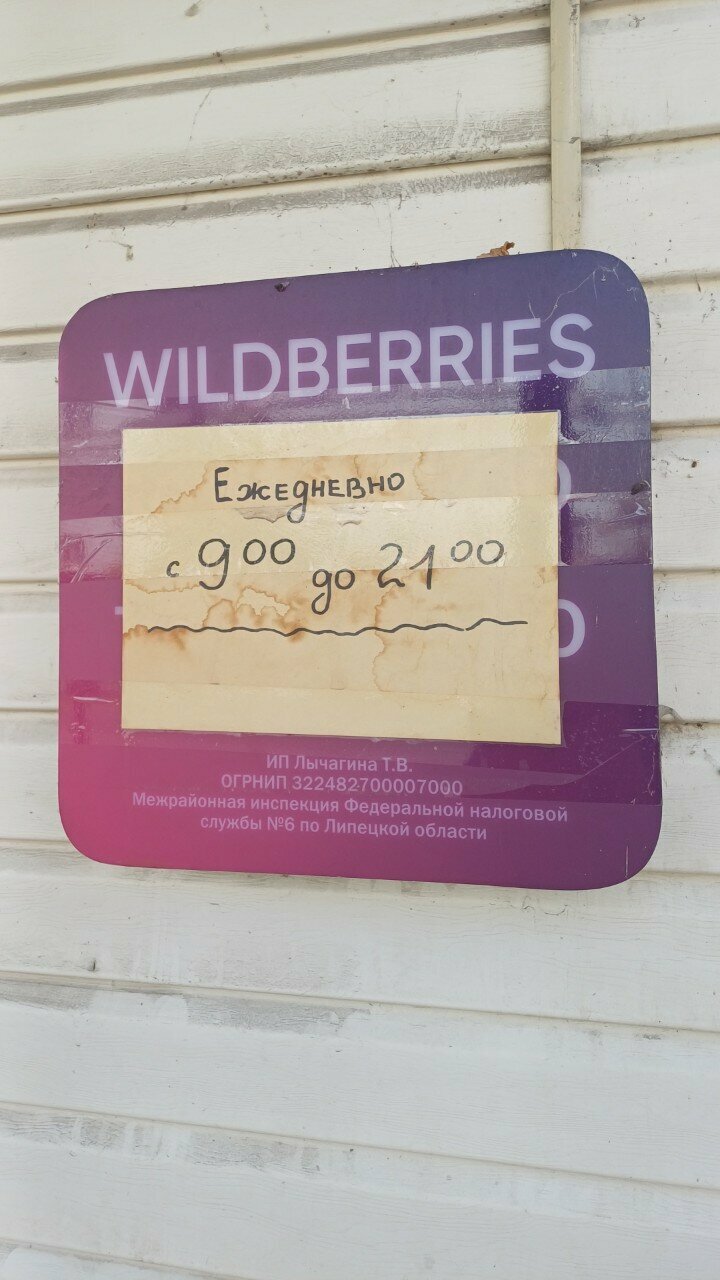 WILDBERRIES
Ежедневно
с 9 00 до 21 00
ИП Лычагина Т.В.
ОГРНИП 322482700007000
Межрайонная инспекция Федеральной налоговой
службы №6 по Липецкой области